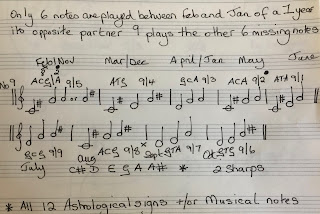 Only 6 notes are played between Feb and Jan of a 1 year
its opposite partner 9 plays the other 6 missing notes
Feb/Nov Mar/Dec April/Jan May June
No 9 9/5 9/4 9/3 9/2 9/1
or
9/9 9/8 9/7 9/6
July Aug Sept Oct
C# D E G A A# * 2 Sharps
* All 12 Astrological signs +/or Musical notes